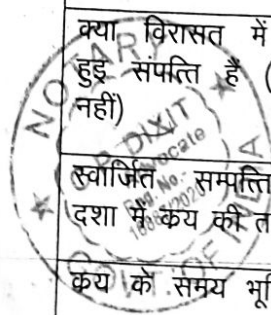 क्या विरासत में
हुई संपत्ति है (
नहीं)
स्वार्जित सम्पत्ति
दशा में कय की त
कय के समय भूमि
NOTARY
DIXIT
Advocate
Reg. No.-